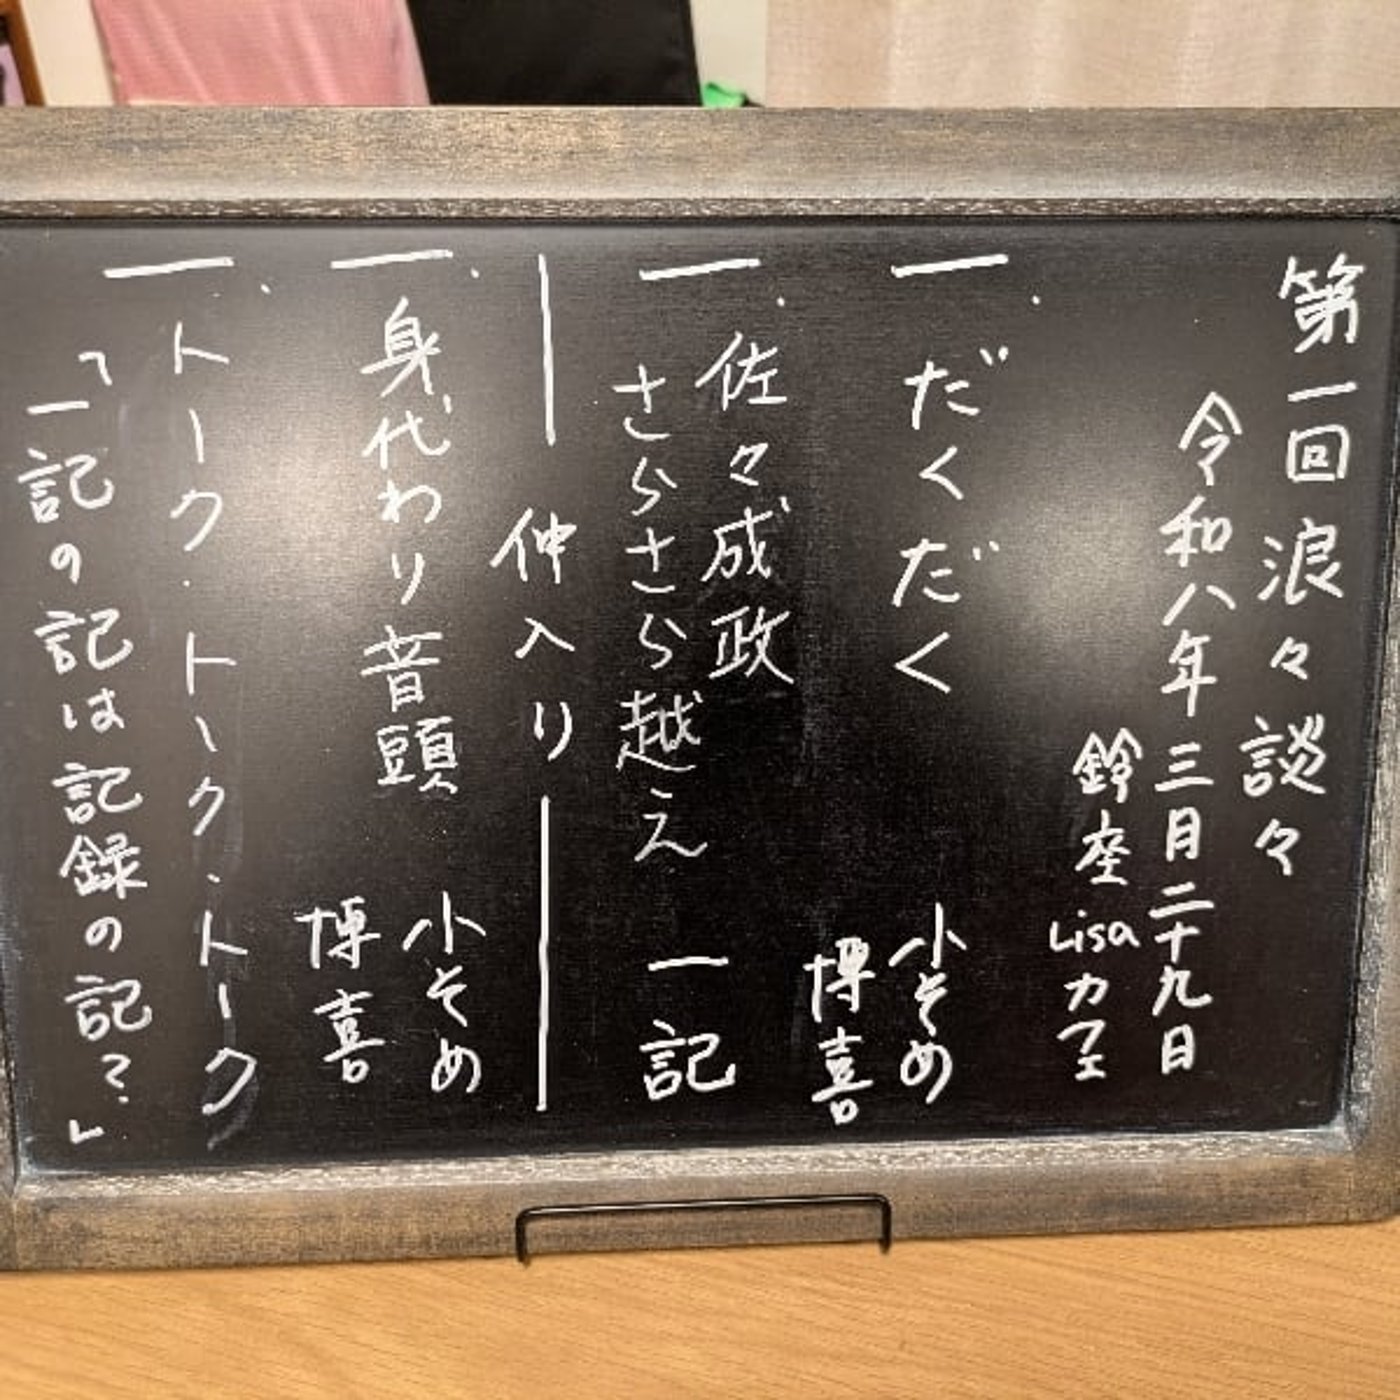 第一回 浪々談々
令和八年三月二十九日
鈴座 Lisaカフェ
一、だくだく
小そめ
博喜
一、佐々成政
さらさら越え
一記
仲入り
一、身代わり音頭
小そめ
博喜
一、トーク・トーク・トーク
「一記の記は記録の記？」